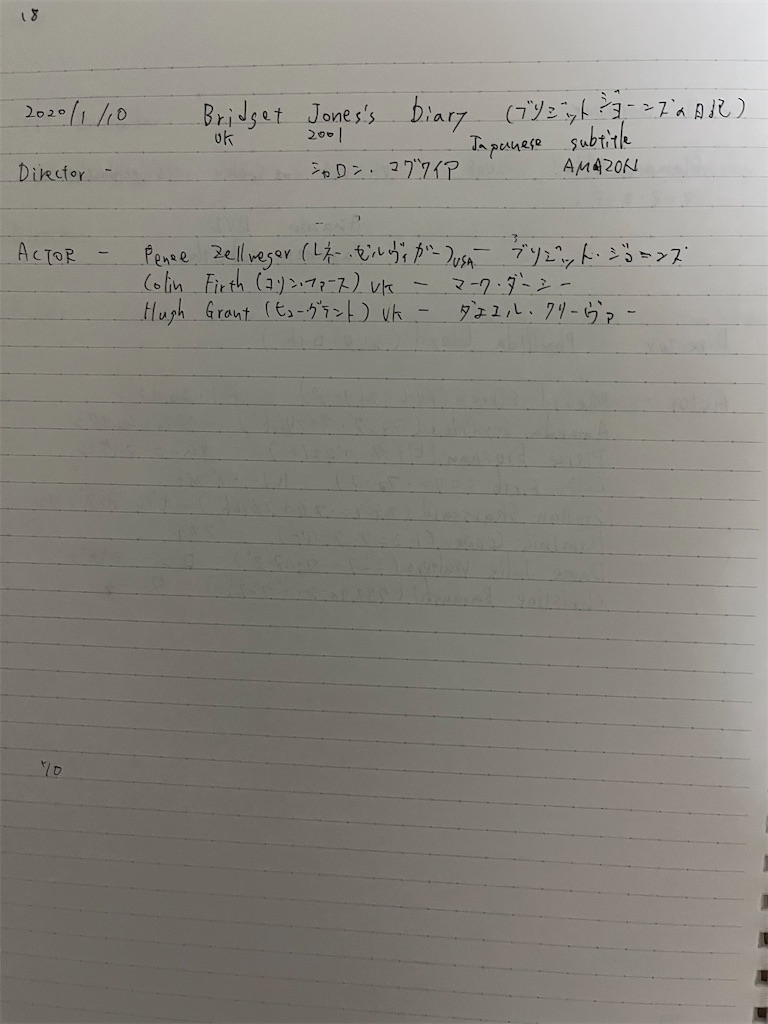 18
2020/1/10 Bridget Jones's Diary (ブリジット・ジョーンズの日記)
UK 2001 Japanese subtitle
Director - シャロン・マグワイア AMAZON
ACTOR - Renee Zellweger (レネー・ゼルウィガー) USA - ブリジット・ジョーンズ
Colin Firth (コリン・ファース) UK - マーク・ダーシー
Hugh Grant (ヒュー・グラント) UK - ダニエル・クリーヴァー